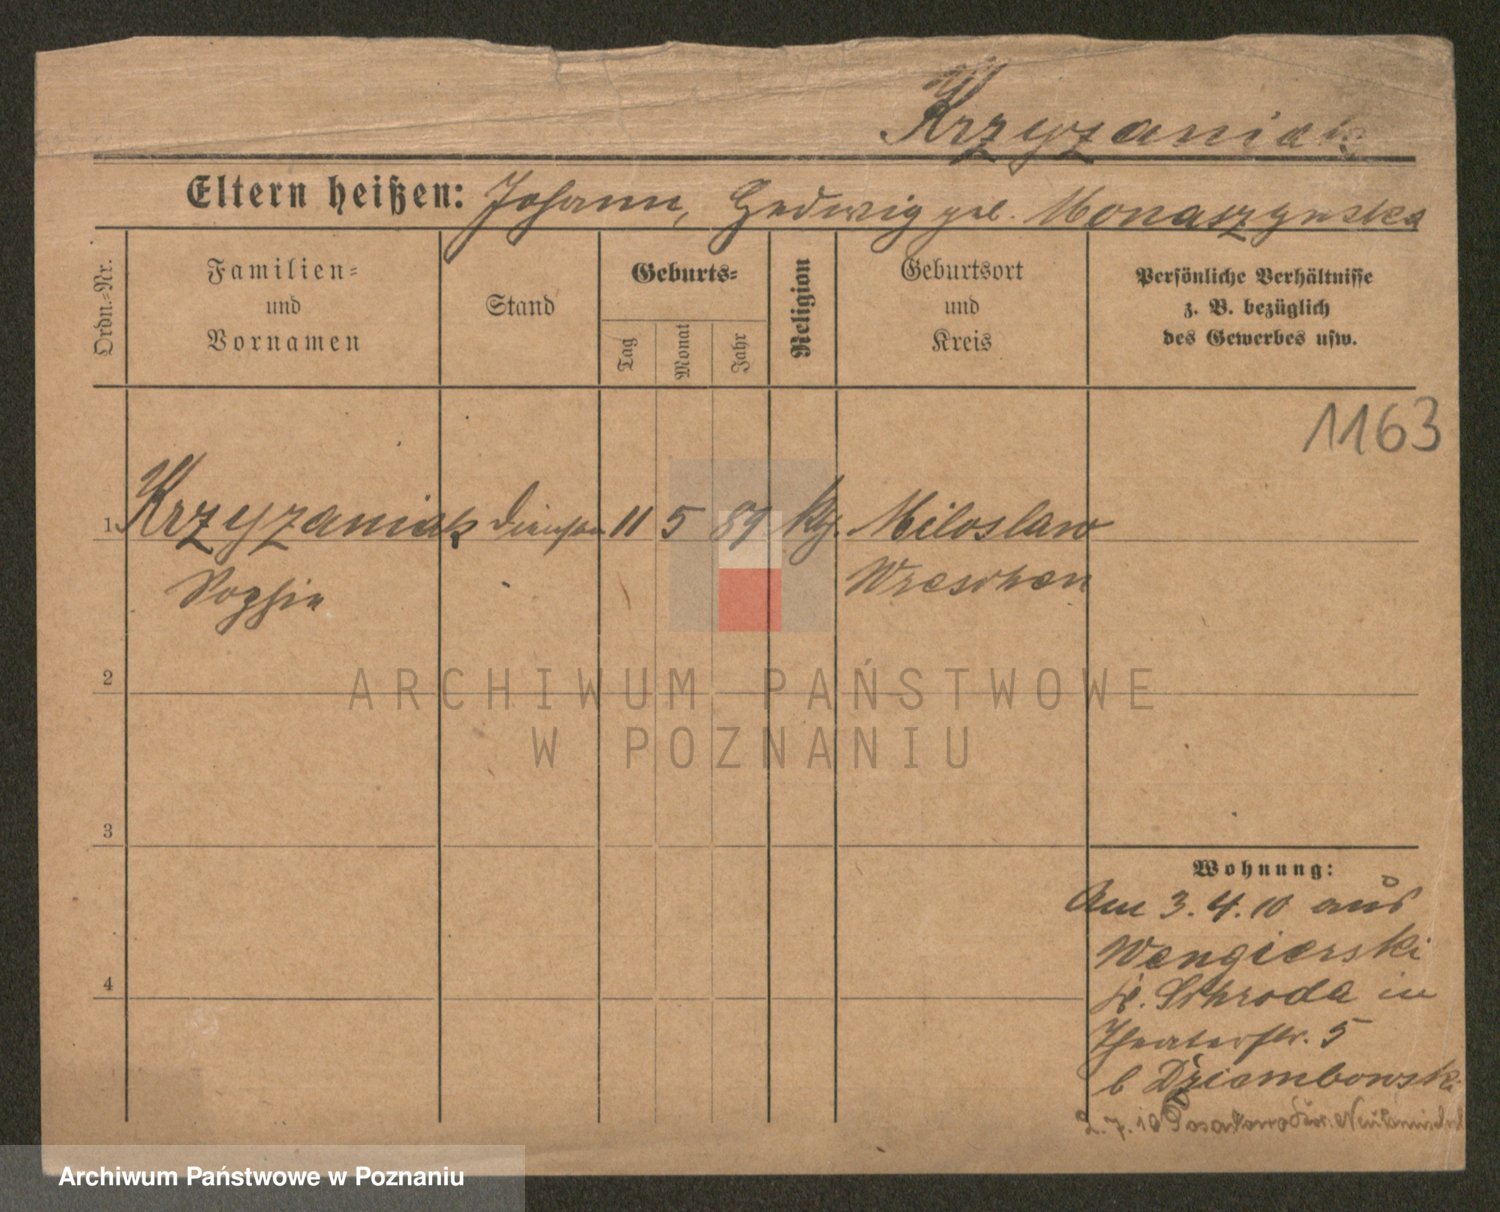 Krzyzaniak
Eltern heißen: Johann, Hedwig geb. Monaszynska
Ordn.=Nr.
Familien=
und
Vornamen
Stand
Geburts=
Tag
Monat
Jahr
Religion
Geburtsort
und
Kreis
Persönliche Verhältnisse
z. B. bezüglich
des Gewerbes usw.
1163
1 Krzyzaniak 11 5 89 kth. Miloslaw
Sophie Wreschen
2
ARCHIWUM PAŃSTWOWE
W POZNANIU
3
Wohnung:
Am 3.4.10 aus
Wengierski
Kr. Schroda in
4
Theaterstr. 5
b Dziembowski
2.7.10
Archiwum Państwowe w Poznaniu